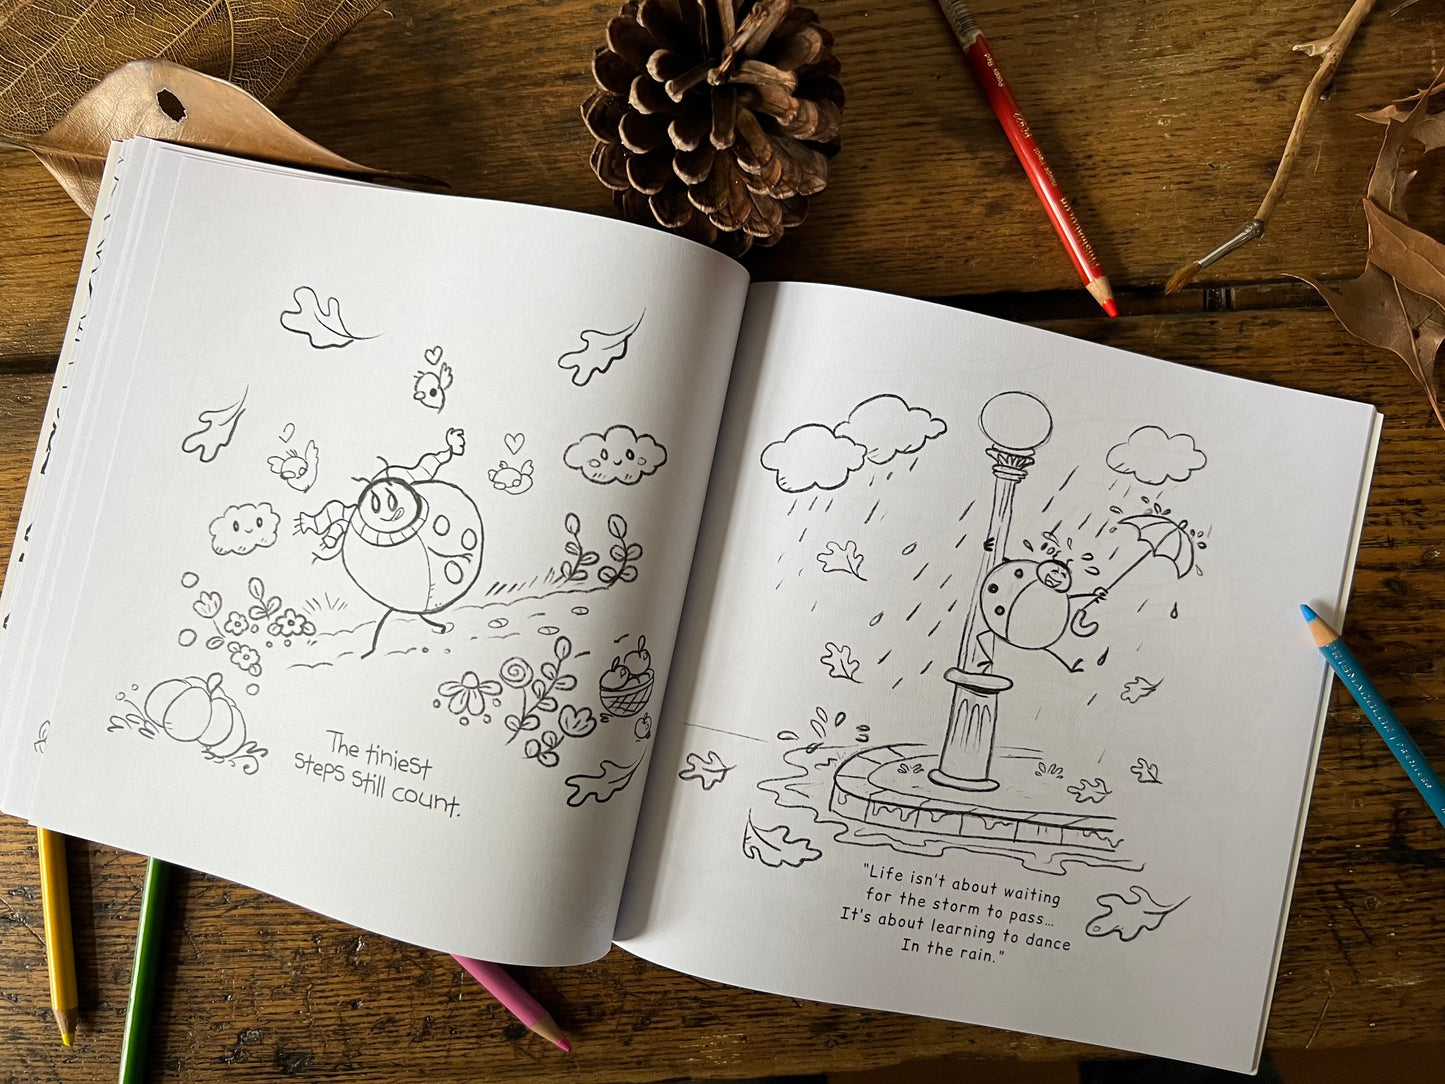 The tiniest
steps still count.
"Life isn't about waiting
for the storm to pass...
It's about learning to dance
In the rain."
Poppy Red
PC922
PRISMACOLOR
PRISMACOLOR | PREMIER